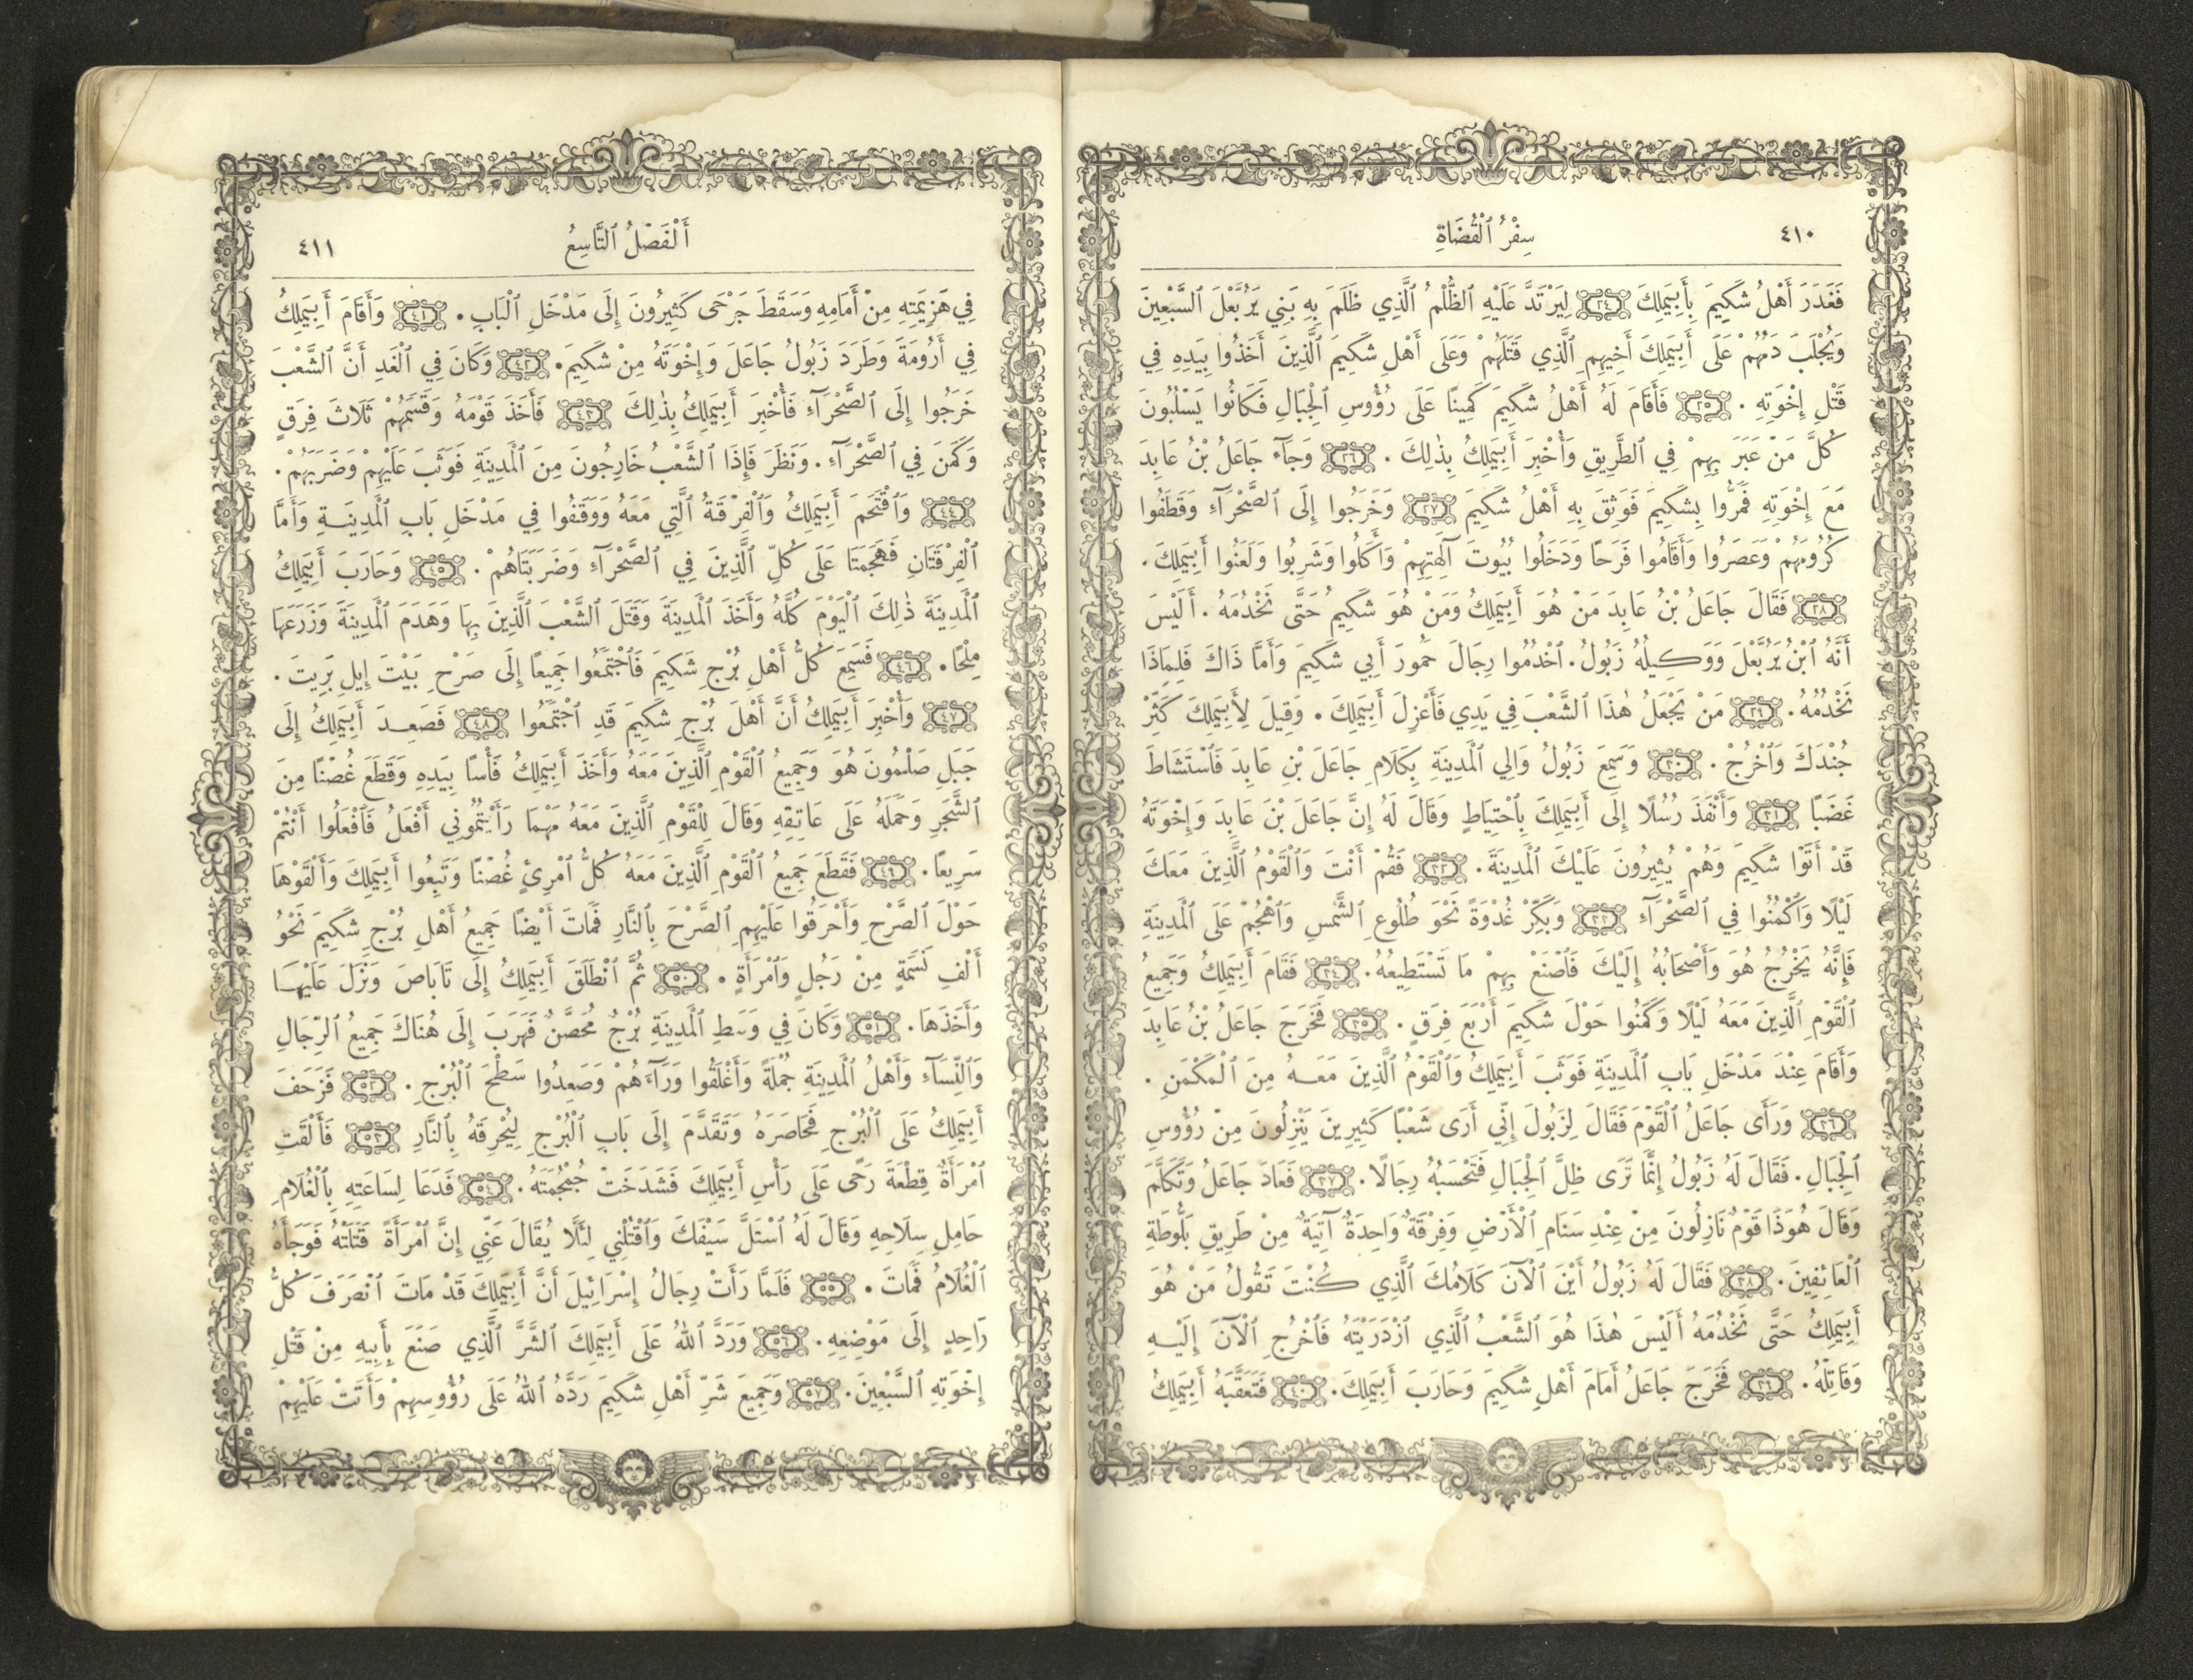 ٤١٠
سِفْرُ ٱلْقُضَاةِ
فَغَدَرَ أَهْلُ شَكِيمَ بِأَبِيمَلِكَ ٢٤ لِيَرْتَدَّ عَلَيْهِ ٱلظُّلْمُ ٱلَّذِي ظَلَمَ بِهِ بَنِي يَرُبَّعْلَ ٱلسَّبْعِينَ
وَيُجْلَبَ دَمُهُمْ عَلَى أَبِيمَلِكَ أَخِيهِمِ ٱلَّذِي قَتَلَهُمْ وَعَلَى أَهْلِ شَكِيمَ ٱلَّذِينَ أَخَذُوا بِيَدِهِ فِي
قَتْلِ إِخْوَتِهِ . ٢٥ فَأَقَامَ لَهُ أَهْلُ شَكِيمَ كَمِينًا عَلَى رُؤُوسِ ٱلْجِبَالِ فَكَانُوا يَسْلُبُونَ
كُلَّ مَنْ عَبَرَ بِهِمْ فِي ٱلطَّرِيقِ وَأُخْبِرَ أَبِيمَلِكُ بِذٰلِكَ . ٢٦ وَجَآءَ جَاعَلُ بْنُ عَابِدَ
مَعَ إِخْوَتِهِ فَمَرُّوا بِشَكِيمَ فَوَثِقَ بِهِ أَهْلُ شَكِيمَ ٢٧ وَخَرَجُوا إِلَى ٱلصَّحْرَآءِ وَقَطَفُوا
كُرُومَهُمْ وَعَصَرُوا وَأَقَامُوا فَرَحًا وَدَخَلُوا بُيُوتَ آلِهَتِهِمْ وَأَكَلُوا وَشَرِبُوا وَلَعَنُوا أَبِيمَلِكَ .
٢٨ فَقَالَ جَاعَلُ بْنُ عَابِدَ مَنْ هُوَ أَبِيمَلِكُ وَمَنْ هُوَ شَكِيمُ حَتَّى نَخْدُمَهُ . أَلَيْسَ
أَنَّهُ ٱبْنُ يَرُبَّعْلَ وَوَكِيلُهُ زَبُولُ . ٱخْدُمُوا رِجَالَ حَمُورَ أَبِي شَكِيمَ وَأَمَّا ذَاكَ فَلِمَاذَا
نَخْدُمُهُ . ٢٩ مَنْ يَجْعَلُ هٰذَا ٱلشَّعْبَ فِي يَدِي فَأَعْزِلَ أَبِيمَلِكَ . وَقِيلَ لِأَبِيمَلِكَ كَثِّرْ
جُنْدَكَ وَٱخْرُجْ . ٣٠ وَسَمِعَ زَبُولُ وَالِي ٱلْمَدِينَةِ بِكَلَامِ جَاعَلَ بْنِ عَابِدَ فَٱسْتَشَاطَ
غَضَبًا ٣١ وَأَنْفَذَ رُسُلًا إِلَى أَبِيمَلِكَ بِٱحْتِيَاطٍ وَقَالَ لَهُ إِنَّ جَاعَلَ بْنَ عَابِدَ وَإِخْوَتَهُ
قَدْ أَتَوْا شَكِيمَ وَهُمْ يُثِيرُونَ عَلَيْكَ ٱلْمَدِينَةَ . ٣٢ فَقُمْ أَنْتَ وَٱلْقَوْمُ ٱلَّذِينَ مَعَكَ
لَيْلًا وَٱكْمُنُوا فِي ٱلصَّحْرَآءِ ٣٣ وَبَكِّرْ غُدْوَةً نَحْوَ طُلُوعِ ٱلشَّمْسِ وَٱهْجُمْ عَلَى ٱلْمَدِينَةِ
فَإِنَّهُ يَخْرُجُ هُوَ وَأَصْحَابُهُ إِلَيْكَ فَٱصْنَعْ بِهِمْ مَا تَسْتَطِيعُهُ . ٣٤ فَقَامَ أَبِيمَلِكُ وَجَمِيعُ
ٱلْقَوْمِ ٱلَّذِينَ مَعَهُ لَيْلًا وَكَمَنُوا حَوْلَ شَكِيمَ أَرْبَعَ فِرَقٍ . ٣٥ فَخَرَجَ جَاعَلُ بْنُ عَابِدَ
وَأَقَامَ عِنْدَ مَدْخَلِ بَابِ ٱلْمَدِينَةِ فَوَثَبَ أَبِيمَلِكُ وَٱلْقَوْمُ ٱلَّذِينَ مَعَهُ مِنَ ٱلْمَكْمَنِ .
٣٦ وَرَأَى جَاعَلُ ٱلْقَوْمَ فَقَالَ لِزَبُولَ إِنِّي أَرَى شَعْبًا كَثِيرِينَ يَنْزِلُونَ مِنْ رُؤُوسِ
ٱلْجِبَالِ . فَقَالَ لَهُ زَبُولُ إِنَّمَا تَرَى ظِلَّ ٱلْجِبَالِ فَتَحْسَبُهُ رِجَالًا . ٣٧ فَعَادَ جَاعَلُ وَتَكَلَّمَ
وَقَالَ هُوَذَا قَوْمٌ نَازِلُونَ مِنْ عِنْدِ سَنَامِ ٱلْأَرْضِ وَفِرْقَةٌ وَاحِدَةٌ آتِيَةٌ مِنْ طَرِيقِ بَلُّوطَةِ
ٱلْعَائِفِينَ . ٣٨ فَقَالَ لَهُ زَبُولُ أَيْنَ ٱلْآنَ كَلَامُكَ ٱلَّذِي كُنْتَ تَقُولُ مَنْ هُوَ
أَبِيمَلِكُ حَتَّى نَخْدُمَهُ أَلَيْسَ هٰذَا هُوَ ٱلشَّعْبُ ٱلَّذِي ٱزْدَرَيْتَهُ فَٱخْرُجِ ٱلْآنَ إِلَيْهِ
وَقَاتِلْهُ . ٣٩ فَخَرَجَ جَاعَلُ أَمَامَ أَهْلِ شَكِيمَ وَحَارَبَ أَبِيمَلِكَ . ٤٠ فَتَعَقَّبَهُ أَبِيمَلِكُ
أَلْفَصْلُ ٱلتَّاسِعُ
٤١١
فِي هَزِيمَتِهِ مِنْ أَمَامِهِ وَسَقَطَ جَرْحَى كَثِيرُونَ إِلَى مَدْخَلِ ٱلْبَابِ . ٤١ وَأَقَامَ أَبِيمَلِكُ
فِي أَرُومَةَ وَطَرَدَ زَبُولُ جَاعَلَ وَإِخْوَتَهُ مِنْ شَكِيمَ . ٤٢ وَكَانَ فِي ٱلْغَدِ أَنَّ ٱلشَّعْبَ
خَرَجُوا إِلَى ٱلصَّحْرَآءِ فَأُخْبِرَ أَبِيمَلِكُ بِذٰلِكَ ٤٣ فَأَخَذَ قَوْمَهُ وَقَسَمَهُمْ ثَلَاثَ فِرَقٍ
وَكَمَنَ فِي ٱلصَّحْرَآءِ . وَنَظَرَ فَإِذَا ٱلشَّعْبُ خَارِجُونَ مِنَ ٱلْمَدِينَةِ فَوَثَبَ عَلَيْهِمْ وَضَرَبَهُمْ .
٤٤ وَٱقْتَحَمَ أَبِيمَلِكُ وَٱلْفِرْقَةُ ٱلَّتِي مَعَهُ وَوَقَفُوا فِي مَدْخَلِ بَابِ ٱلْمَدِينَةِ وَأَمَّا
ٱلْفِرْقَتَانِ فَهَجَمَتَا عَلَى كُلِّ ٱلَّذِينَ فِي ٱلصَّحْرَآءِ وَضَرَبَتَاهُمْ . ٤٥ وَحَارَبَ أَبِيمَلِكُ
ٱلْمَدِينَةَ ذٰلِكَ ٱلْيَوْمَ كُلَّهُ وَأَخَذَ ٱلْمَدِينَةَ وَقَتَلَ ٱلشَّعْبَ ٱلَّذِينَ بِهَا وَهَدَمَ ٱلْمَدِينَةَ وَزَرَعَهَا
مِلْحًا . ٤٦ فَسَمِعَ كُلُّ أَهْلِ بُرْجِ شَكِيمَ فَٱجْتَمَعُوا جَمِيعًا إِلَى صَرْحِ بَيْتَ إِيلِ بَرِيتَ .
٤٧ وَأُخْبِرَ أَبِيمَلِكُ أَنَّ أَهْلَ بُرْجِ شَكِيمَ قَدِ ٱجْتَمَعُوا ٤٨ فَصَعِدَ أَبِيمَلِكُ إِلَى
جَبَلِ صَلْمُونَ هُوَ وَجَمِيعُ ٱلْقَوْمِ ٱلَّذِينَ مَعَهُ وَأَخَذَ أَبِيمَلِكُ فَأْسًا بِيَدِهِ وَقَطَعَ غُصْنًا مِنَ
ٱلشَّجَرِ وَحَمَلَهُ عَلَى عَاتِقِهِ وَقَالَ لِلْقَوْمِ ٱلَّذِينَ مَعَهُ مَهْمَا رَأَيْتُمُونِي أَفْعَلُ فَٱفْعَلُوا أَنْتُمْ
سَرِيعًا . ٤٩ فَقَطَعَ جَمِيعُ ٱلْقَوْمِ ٱلَّذِينَ مَعَهُ كُلُّ ٱمْرِئٍ غُصْنًا وَتَبِعُوا أَبِيمَلِكَ وَأَلْقَوْهَا
حَوْلَ ٱلصَّرْحِ وَأَحْرَقُوا عَلَيْهِمِ ٱلصَّرْحَ بِٱلنَّارِ فَمَاتَ أَيْضًا جَمِيعُ أَهْلِ بُرْجِ شَكِيمَ نَحْوُ
أَلْفِ نَسَمَةٍ مِنْ رَجُلٍ وَٱمْرَأَةٍ . ٥٠ ثُمَّ ٱنْطَلَقَ أَبِيمَلِكُ إِلَى تَابَاصَ وَنَزَلَ عَلَيْهَا
وَأَخَذَهَا . ٥١ وَكَانَ فِي وَسَطِ ٱلْمَدِينَةِ بُرْجٌ مُحَصَّنٌ فَهَرَبَ إِلَى هُنَاكَ جَمِيعُ ٱلرِّجَالِ
وَٱلنِّسَآءِ وَأَهْلُ ٱلْمَدِينَةِ جُمْلَةً وَأَغْلَقُوا وَرَآءَهُمْ وَصَعِدُوا سَطْحَ ٱلْبُرْجِ . ٥٢ فَزَحَفَ
أَبِيمَلِكُ عَلَى ٱلْبُرْجِ فَحَاصَرَهُ وَتَقَدَّمَ إِلَى بَابِ ٱلْبُرْجِ لِيُحْرِقَهُ بِٱلنَّارِ ٥٣ فَأَلْقَتِ
ٱمْرَأَةٌ قِطْعَةَ رَحًى عَلَى رَأْسِ أَبِيمَلِكَ فَشَدَخَتْ جُمْجُمَتَهُ . ٥٤ فَدَعَا لِسَاعَتِهِ بِٱلْغُلَامِ
حَامِلِ سِلَاحِهِ وَقَالَ لَهُ ٱسْتَلَّ سَيْفَكَ وَٱقْتُلْنِي لِئَلَّا يُقَالَ عَنِّي إِنَّ ٱمْرَأَةً قَتَلَتْهُ فَوَجَأَهُ
ٱلْغُلَامُ فَمَاتَ . ٥٥ فَلَمَّا رَأَتْ رِجَالُ إِسْرَائِيلَ أَنَّ أَبِيمَلِكَ قَدْ مَاتَ ٱنْصَرَفَ كُلُّ
وَاحِدٍ إِلَى مَوْضِعِهِ . ٥٦ وَرَدَّ ٱللهُ عَلَى أَبِيمَلِكَ ٱلشَّرَّ ٱلَّذِي صَنَعَ بِأَبِيهِ مِنْ قَتْلِ
إِخْوَتِهِ ٱلسَّبْعِينَ . ٥٧ وَجَمِيعَ شَرِّ أَهْلِ شَكِيمَ رَدَّهُ ٱللهُ عَلَى رُؤُوسِهِمْ وَأَتَتْ عَلَيْهِمْ